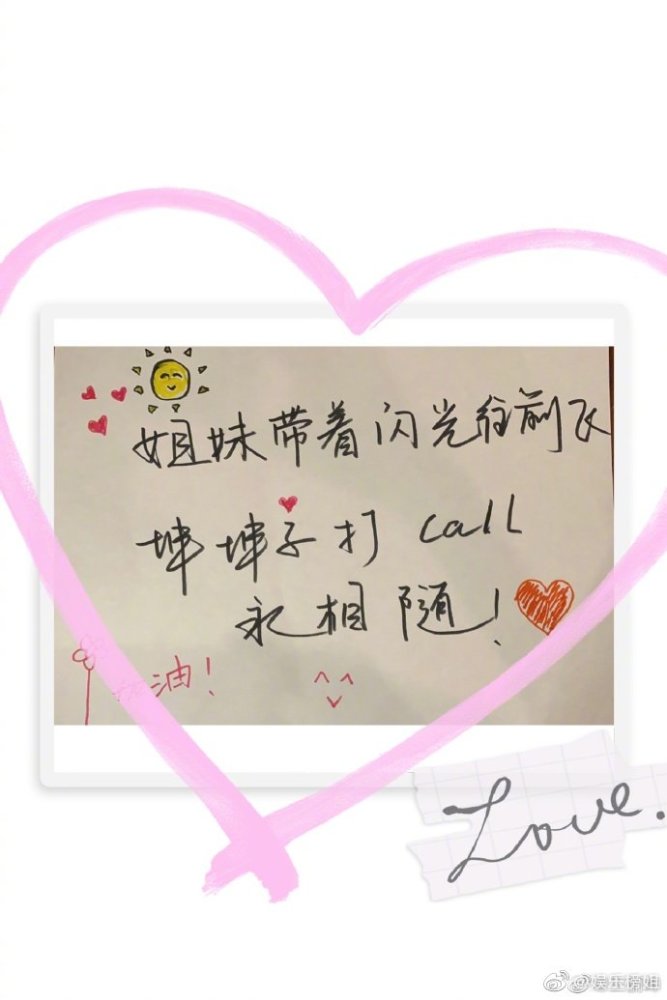 姐妹带着闪光往前飞
坤坤子打 call
永相随！
加油！
Love.
@娱乐榜姐